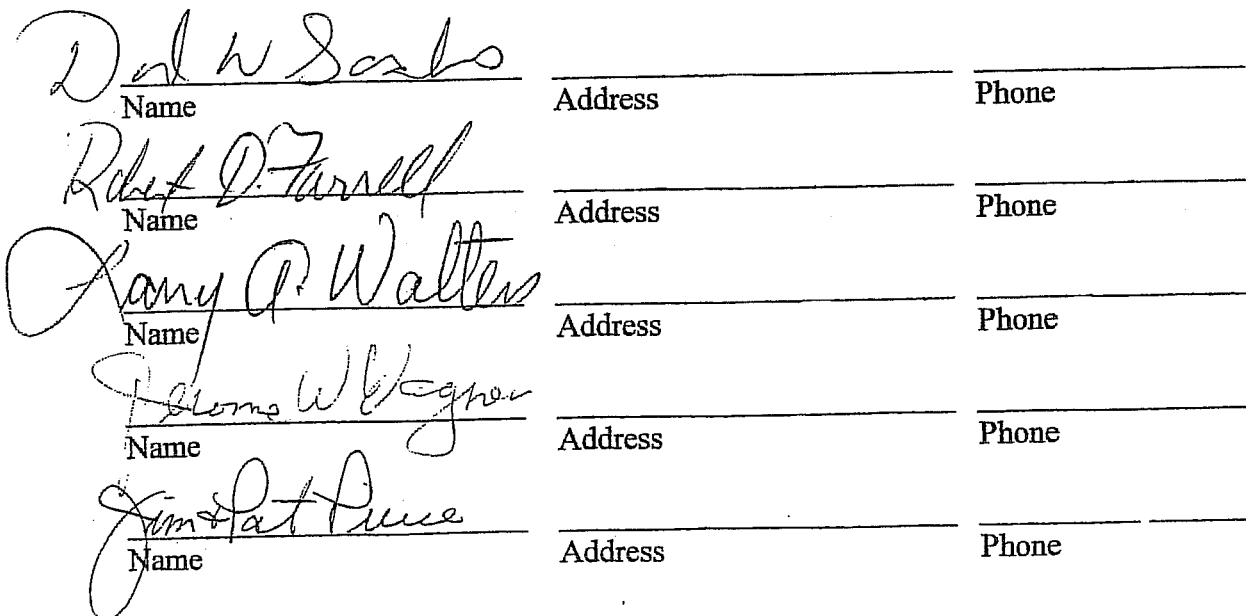 W
Name Address Phone
Robert D. Farrell
Name Address Phone
Larry P. Walters
Name Address Phone
Jerome W Wagner
Name Address Phone
Jim & Pat
Name Address Phone